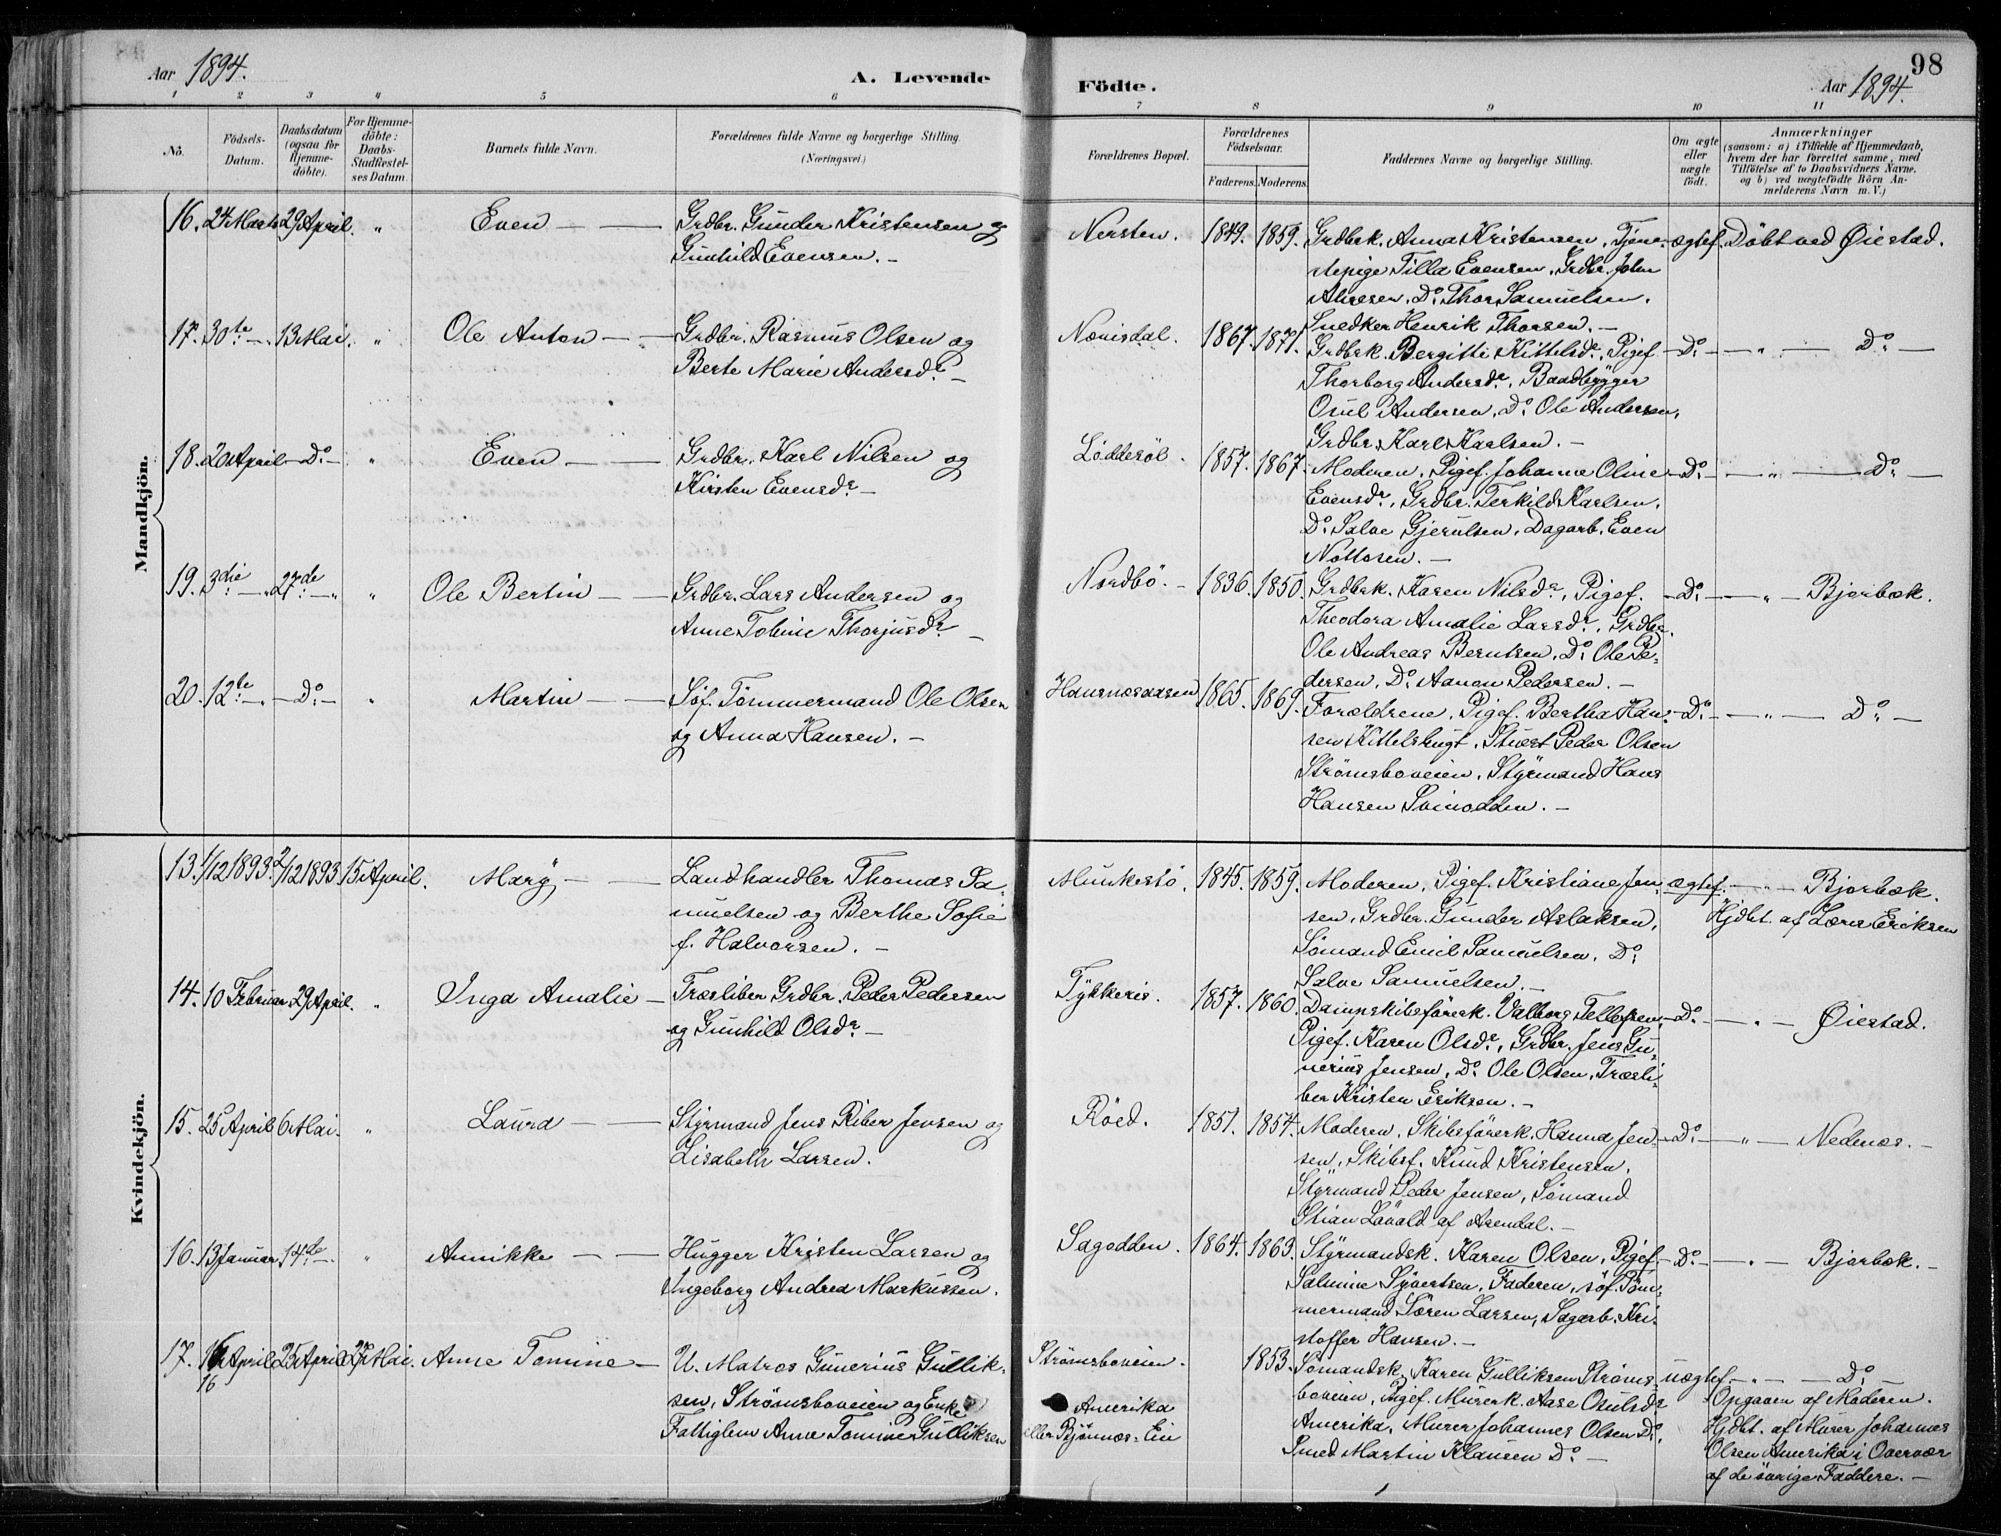 Aar 1894.
A. Levende
Födte.
98
Aar 1894.
1 2 3 4 5 6 7 8 9 10 11
No.
Födsels-Datum.
Daabsdatum (ogsaa for Hjemmedöbte).
For Hjemmedöbte: Daabs-Stadfæstelses Datum.
Barnets fulde Navn.
Forældrenes fulde Navne og borgerlige Stilling.
(Næringsvei.)
Forældrenes Bopæl.
Forældrenes Födselsaar.
Faderens. Moderens.
Faddernes Navne og borgerlige Stilling.
Om ægte eller uægte födt.
Anmærkninger
(saasom: a) i Tilfælde af Hjemmedaab,
hvem der har forrettet samme, med
Tilföielse af to Daabsvidners Navne.
og b) ved uægtefödte Börn An-
melderens Navn m. V.)
Mandkjön.
16. 24 Marts 29 April. " Even — Grdbr. Gunder Kristensen og
Gunhild Evensen. —
Nersten. 1849. 1859. Grdbrk. Anna Kristensen, Tjene-
stepige Tilla Evensen, Grdbr. John
Alvesen, Do. Thor Samuelsen,
Snedker Henrik Thorsen. —
ægtef. Döbt ved Øiestad.
17. 30te — 13 Mai. " Ole Anton — Grdbr. Rasmus Olsen og
Berte Marie Andersdr. —
Nævisdal. 1867. 1871. Grdbrk. Bergitte Kittelsdr., Pigef.
Thorborg Andersdr., Baadbygger
Osul Andersen, Do. Ole Andersen,
Grdbr. Karl Karlsen. —
Do. — " — Do. —
18. 20 April — Do. — " Even — Grdbr. Karl Nilsen og
Kirsten Evensdr. —
Løddesøl. 1857. 1867. Moderen, Pigef. Johanne Oline
Evensdr., Grdbr. Terkild Karlsen,
Do. Salve Gjerulsen, Dagarb. Even
Nottosen. —
Do. — " — Do. —
19. 3die — " 27de — " " Ole Bertin — Grdbr. Lars Andersen og
Anne Tobine Thorjusdr. —
Nordbö. — 1836. 1850. Grdbrk. Karen Nilsdr., Pigef.
Theodora Amalie Larsdr., Grdbr.
Ole Andreas Berntsen, Do. Ole Pe-
dersen, Do. Aanon Pedersen. —
Do. — " — Bjorbæk.
20. 12te — " — Do. — " Martin — Söf. Tömmermand Ole Olsen
og Anna Hansen. —
Hansnesaasen 1865. 1869. Forældrene, Pigef. Bertha Han-
sen Kittelsbugt, Stuert Peder Olsen
Strömsboveien, Styrmand Hans
Hansen Svinodden. —
Do. — " — Do. —
Kvindekjön.
13. 1/12 1893. 2/12 1893. 15 April. Mary — Landhandler Thomas Sa-
muelsen og Berthe Sofie
f. Halvorsen. —
Munkestø. 1845. 1859. Moderen, Pigef. Kristiane Jen-
sen, Grdbr. Gunder Aslaksen,
Sömand Emil Samuelsen, Do.
Salve Samuelsen. —
ægtef. — " — Bjorbæk.
Hjdbt. af Lærer Eriksen
14. 10 Februar 29 April. " Inga Amalie — Træsliber Grdbr. Peder Pedersen
og Gunhild Olsdr. —
Tykkeris. 1857. 1860. Dampskibsförerk. Valborg Tellefsen,
Pigef. Karen Olsdr., Grdbr. Jens Gu-
nerius Jensen, Do. Ole Olsen, Træsli-
ber Kristen Eriksen. —
Do. — " — Øiestad.
15. 25 April 6 Mai. " Laura — Styrmand Jens Riber Jensen og
Lisabeth Larsen.
Röed. 1851. 1854. Moderen, Skibsförerk. Hanna Jen-
sen, Skibsf. Knud Kristensen,
Styrmand Peder Jensen, Sömand
Stian Lövald af Arendal. —
Do. — " — Nedenæs. —
16. 13 Januar 14de — " Annikke — Hugger Kristen Larsen og
Ingeborg Andrea Markussen.
Sagodden. 1864. 1863. Styrmandsk. Karen Olsen, Pigef.
Salmine Syvertsen, Faderen, söf. Töm-
mermand Sören Larsen, Sagarb. Kri-
stoffer Hansen. —
Do. — " — Bjorbæk. —
17. 16 April 25 April 27 Mai. Anne Tomine — U. Matros Gunerius Gullik-
16
sen, Strömsboveien og Enke
Fattiglem Anne Tomine Gulliksen
Strömsboveien.
Amerika
eller Björnnes-Ein
1853. Sömandsk. Karen Gulliksen Ströms-
boveien, Pigef. Murerk. Aase Osulsdr.
Amerika, Murer Johannes Olsen Do.,
Smed Martin Klausen Do. —
uægtef. — " — Do.
Opgaven af Moderen.
Hjdbt. af Murer Johannes
Olsen Amerika i Overvær
af de övrige Faddere. —